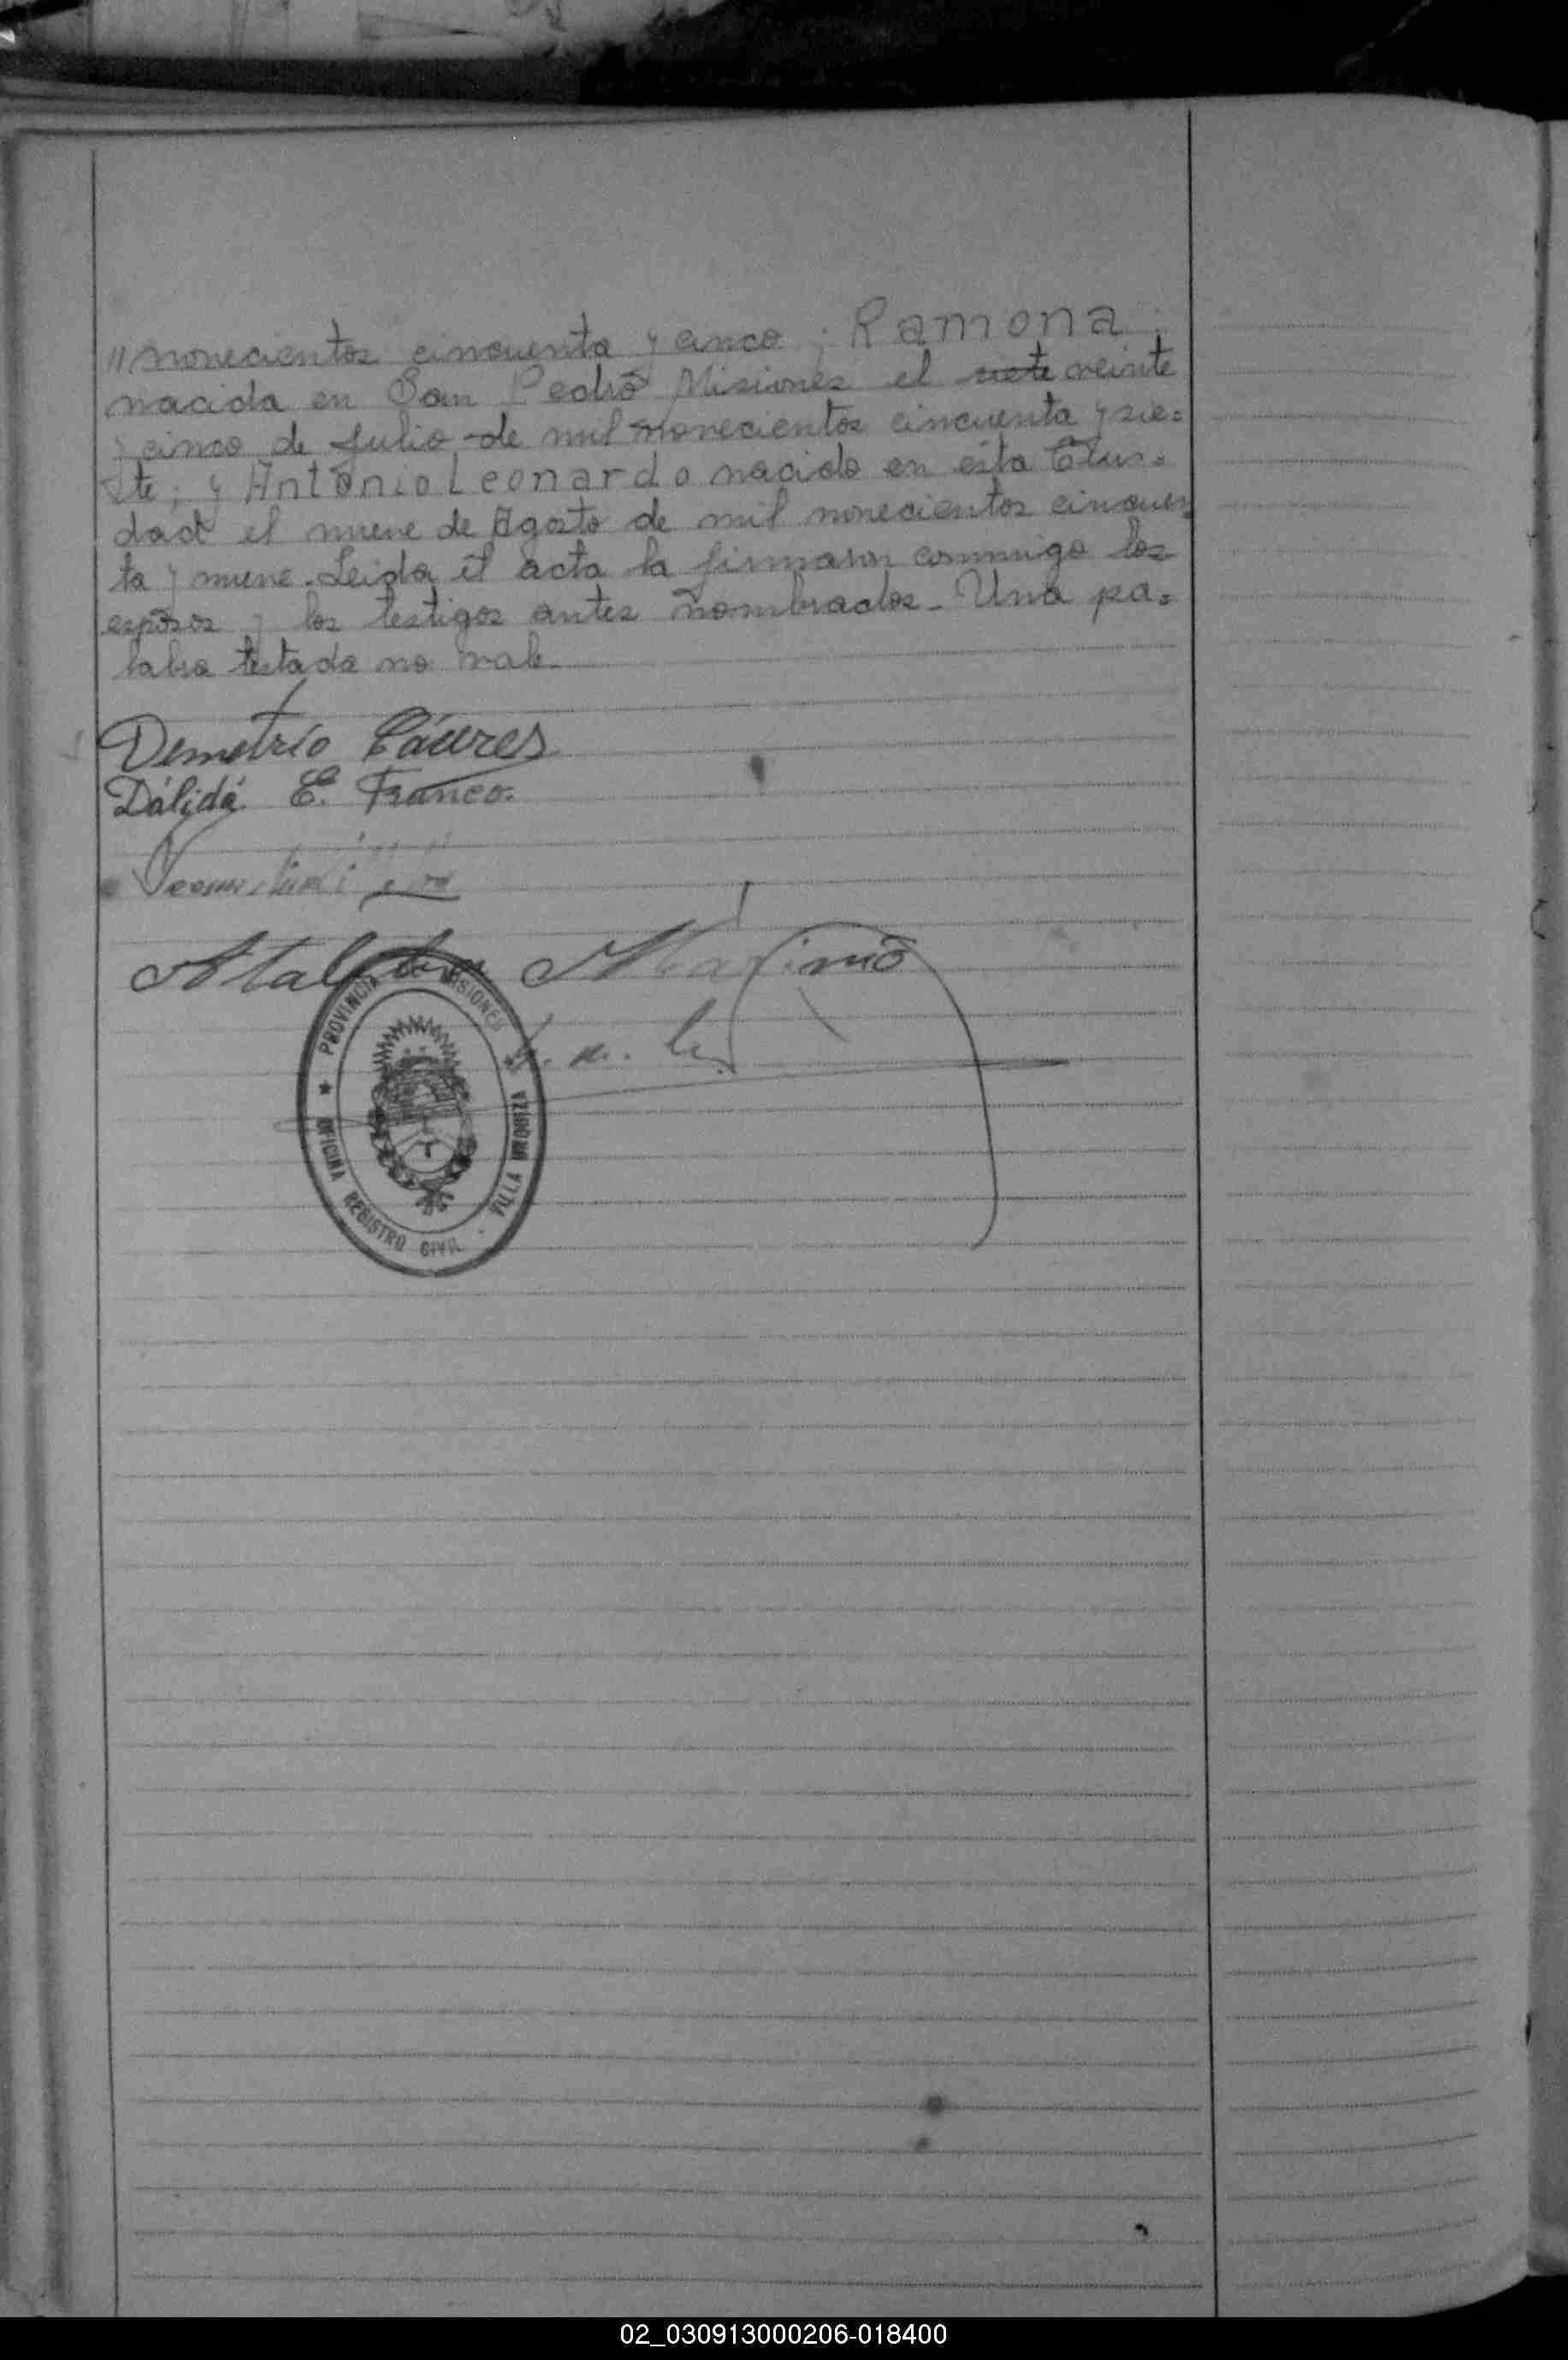 // novecientos cincuenta y cinco ; Ramona ;
nacida en San Pedro Misiones el siete veinte
y cinco de Julio de mil novecientos cincuenta y sie=
te ; y Antonio Leonardo nacido en esta Ciu=
dad el nueve de Agosto de mil novecientos cincuen
ta y nueve. Leida el acta la firmaron conmigo los
esposos y los testigos antes nombrados - Una pa=
labra testada no vale -
Demetrio Cáceres
Dálidá E. Franco.
PROVINCIA DE MISIONES
OFICINA REGISTRO CIVIL - VILLA URQUIZA
02_030913000206-018400